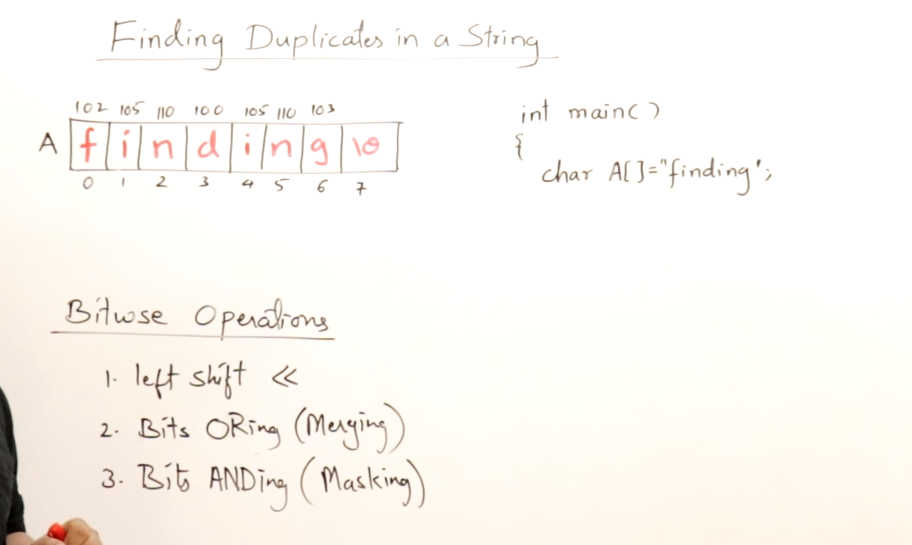 Finding Duplicates in a String
102 105 110 100 105 110 103
A f i n d i n g \0
0 1 2 3 4 5 6 7
int main()
{
char A[]="finding';
Bitwse Operations
1. left shift <<
2. Bits ORing (Merging)
3. Bits ANDing (Masking)